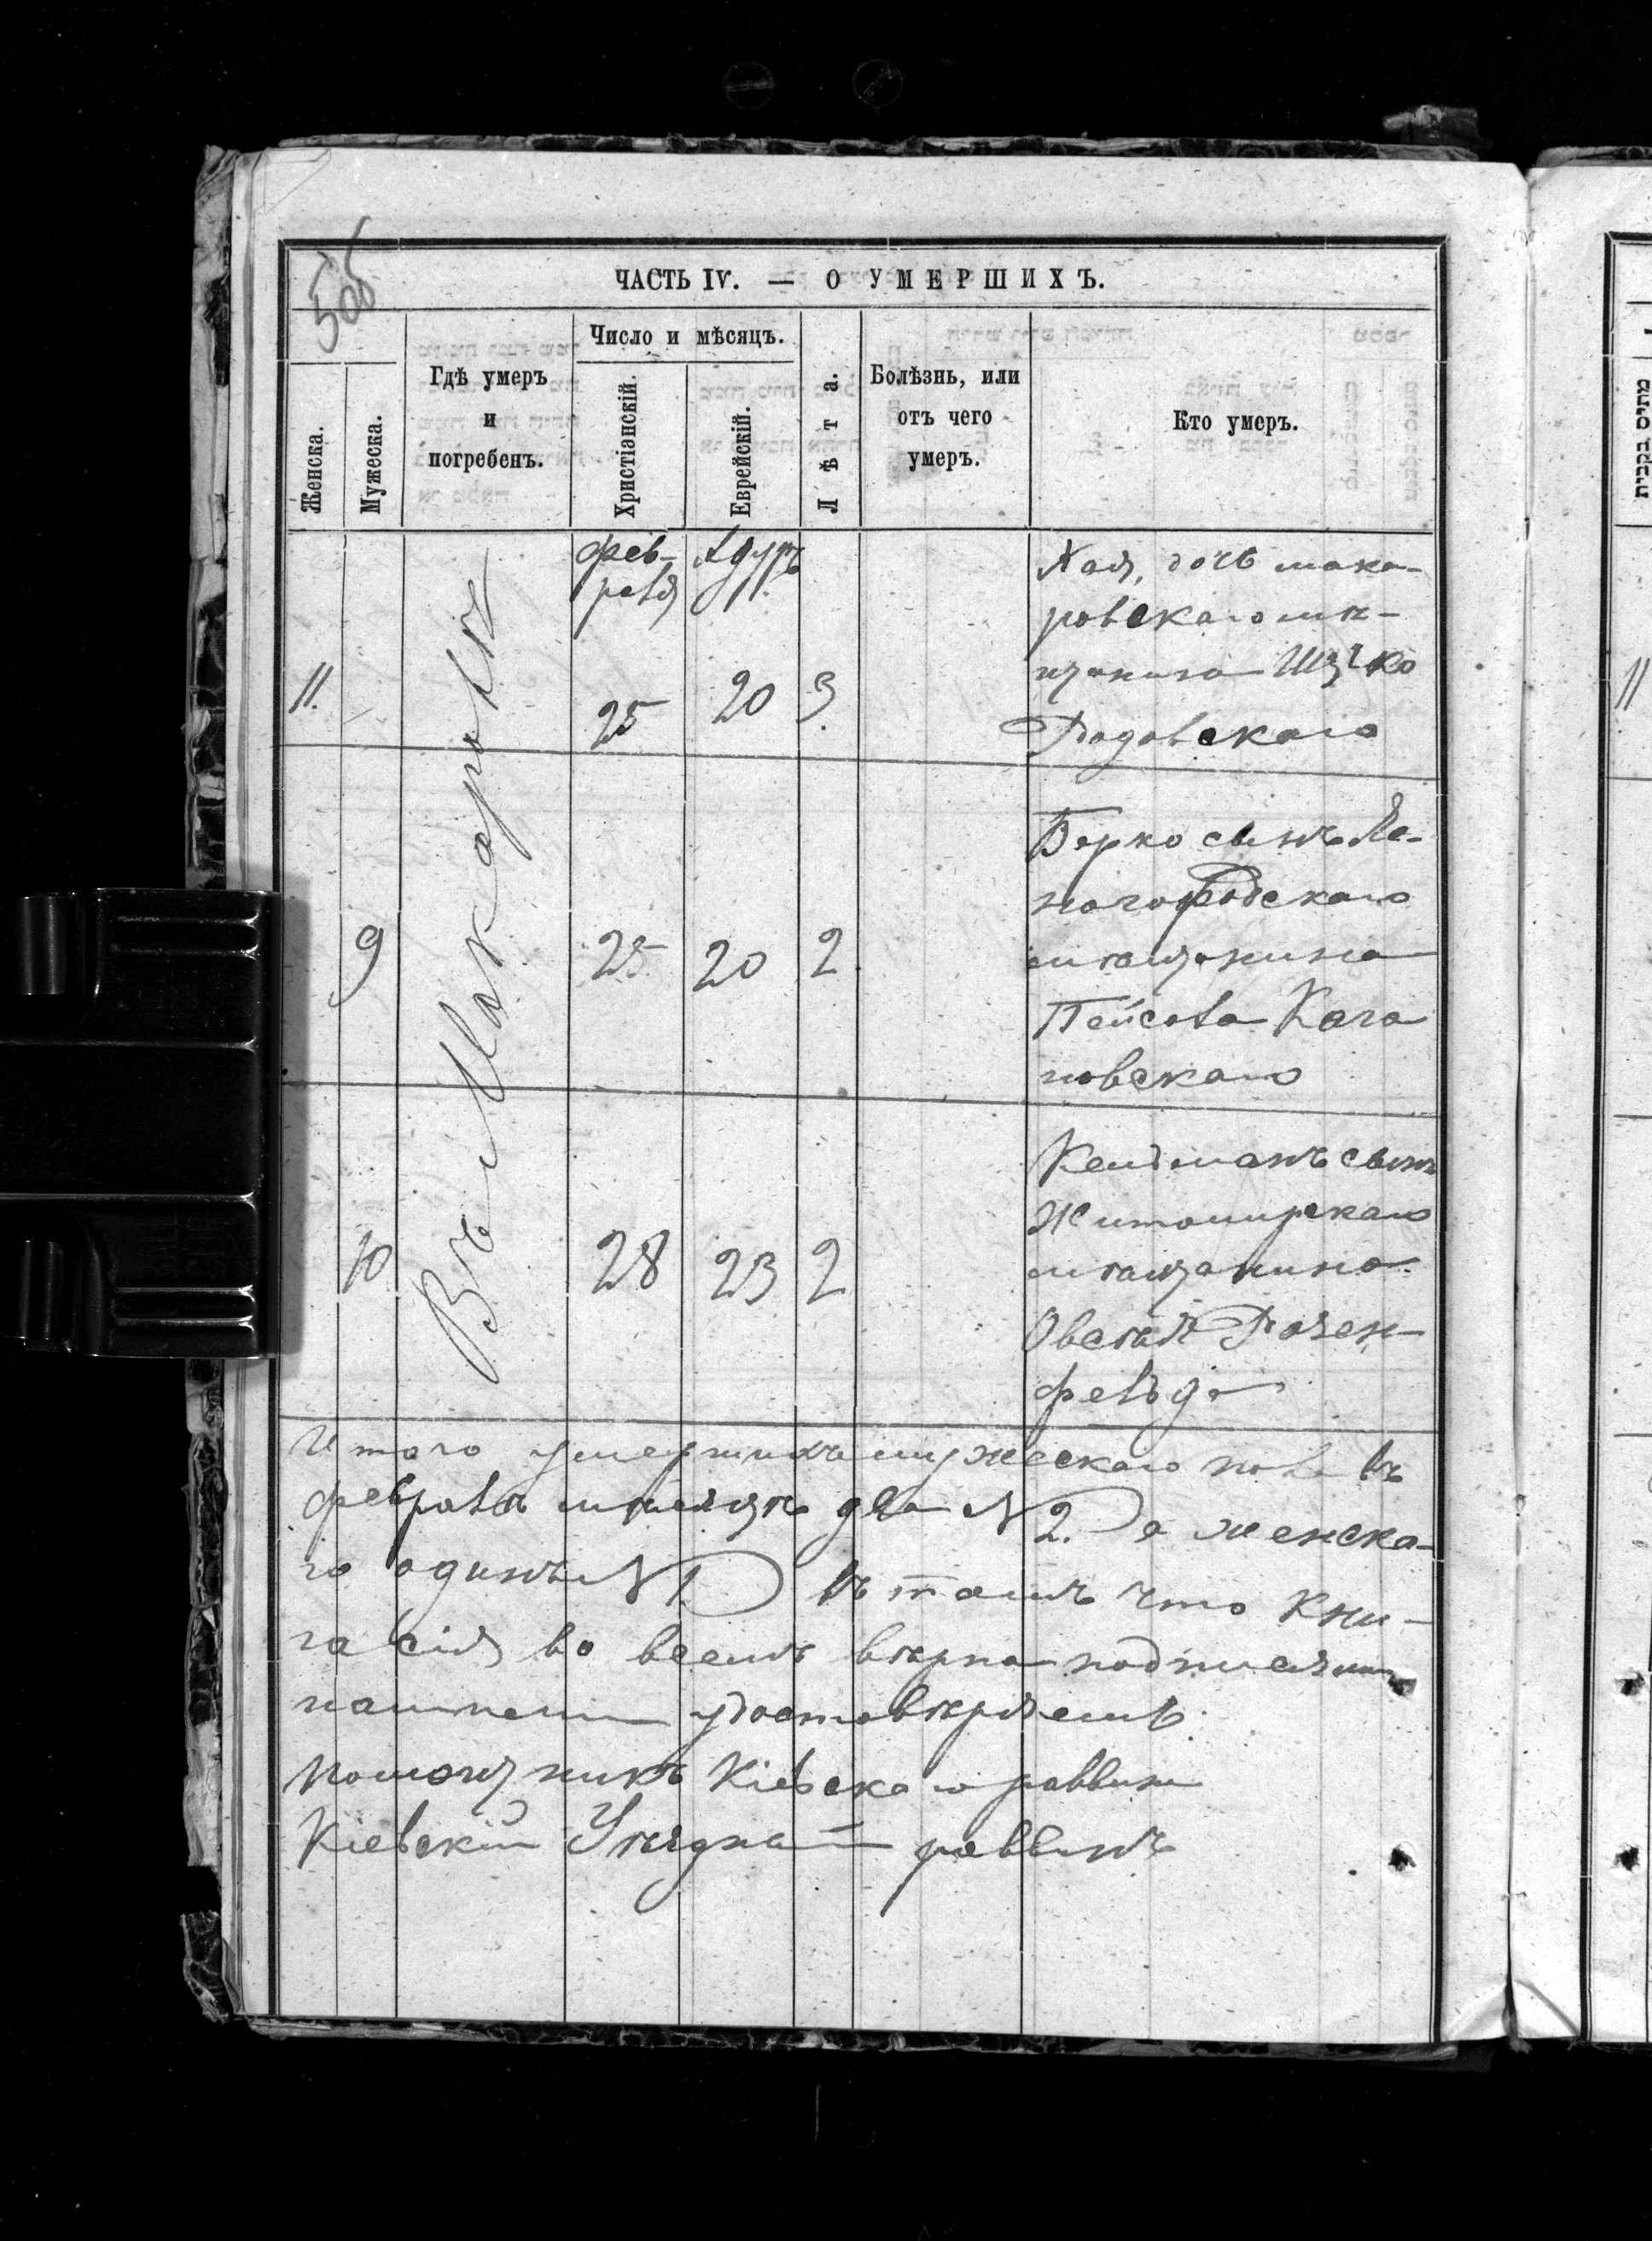 ЧАСТЬ IV. — О УМЕРШИХЪ.
Женска.
Мужеска.
Гдѣ умеръ
и
погребенъ.
Число и мѣсяцъ.
Христіанскій.
Еврейскій.
Лѣта.
Болѣзнь, или
отъ чего
умеръ.
Кто умеръ.
Въ Макаровѣ
11.
фев-
раля
25
Адуръ
20
3
Хая, дочь мака-
ровскаго мѣ-
щанина
Радовскаго
9
25
20
2
Берко сынъ
Пейсова Кага
новскаго
10
28
23
2
сынъ
Житомирскаго
мѣщанина
Овсѣя Розен-
фельда
Итого умершихъ мужескаго пола въ
февралѣ мѣсяцѣ два № 2. а женска-
го одинъ № 1 въ томъ что кни-
га сія во всемъ вѣрна подписями
нашими удостовѣряемъ
Помощникъ Кіевскаго раввина
Кіевскій Уѣздный раввинъ
11